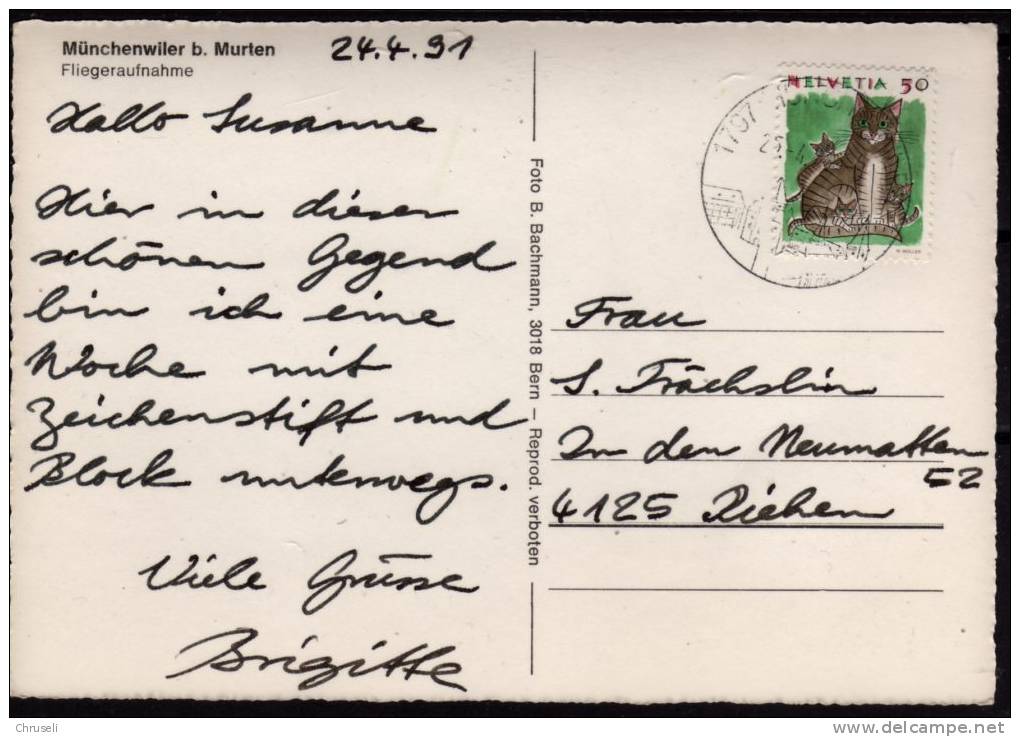 Münchenwiler b. Murten
Fliegeraufnahme
24.4.91
Hallo Susanne
Hier in dieser
schönen Gegend
bin ich eine
Woche mit
Zeichenstift und
Block unterwegs.
Viele Grüsse
Brigitte
Foto B. Bachmann, 3018 Bern – Reprod. verboten
HELVETIA 50
1797
Frau
S. Frächslin
In den Neumatten
52
4125 Riehen
Chruseli
www.delcampe.net